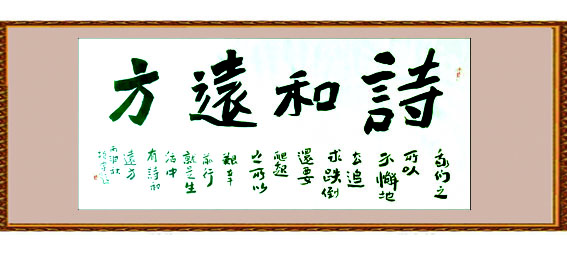 詩和遠方
我們之
所以
不懈地
去追
求跌倒
還要
爬起
之所以
艱辛
前行
就是生
活中
有詩和
遠方
丙申秋